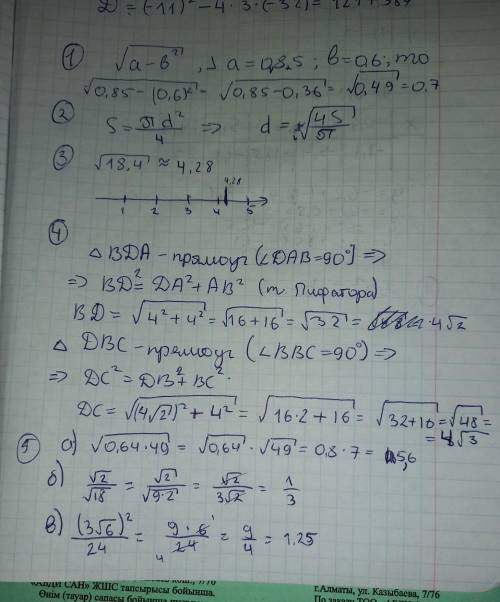 D = (-11)² - 4 · 3 · (-32) = 121 + 384
① √(a-b²), a = 0,8.5; b = 0,6; то
√(0,85 - (0,6)²) = √(0,85-0,36) = √0,49 = 0,7
② S = πd²/4 ⇒ d = √(4S/π)
③ √18,4 ≈ 4,28
4,28
1 2 3 4 5
④
△ BDA - прямоуг (∠DAB = 90°] ⇒
⇒ BD² = DA² + AB² (т. Пифагора)
BD = √(4² + 4²) = √(16+16) = √32 = 4√2
△ DBC - прямоуг (∠BBC = 90°) ⇒
⇒ DC² = DB² + BC².
DC = √((4√2)² + 4²) = √(16·2 + 16) = √(32+16) = √48 =
= 4√3
⑤ а) √(0,64·49) = √0,64 · √49 = 0,8 · 7 = 5,6
б) √2/√18 = √2/√(9·2) = √2/3√2 = 1/3
в) (3√6)²/24 = 9·6/24 = 9/4 = 1,25
1
4
«АВДИ САН» ЖШС тапсырысы бойынша.
Өнім (тауар) сапасы бойынша
7/76
г.Алматы, ул. Казыбаева, 7/76
По заказу ТОО